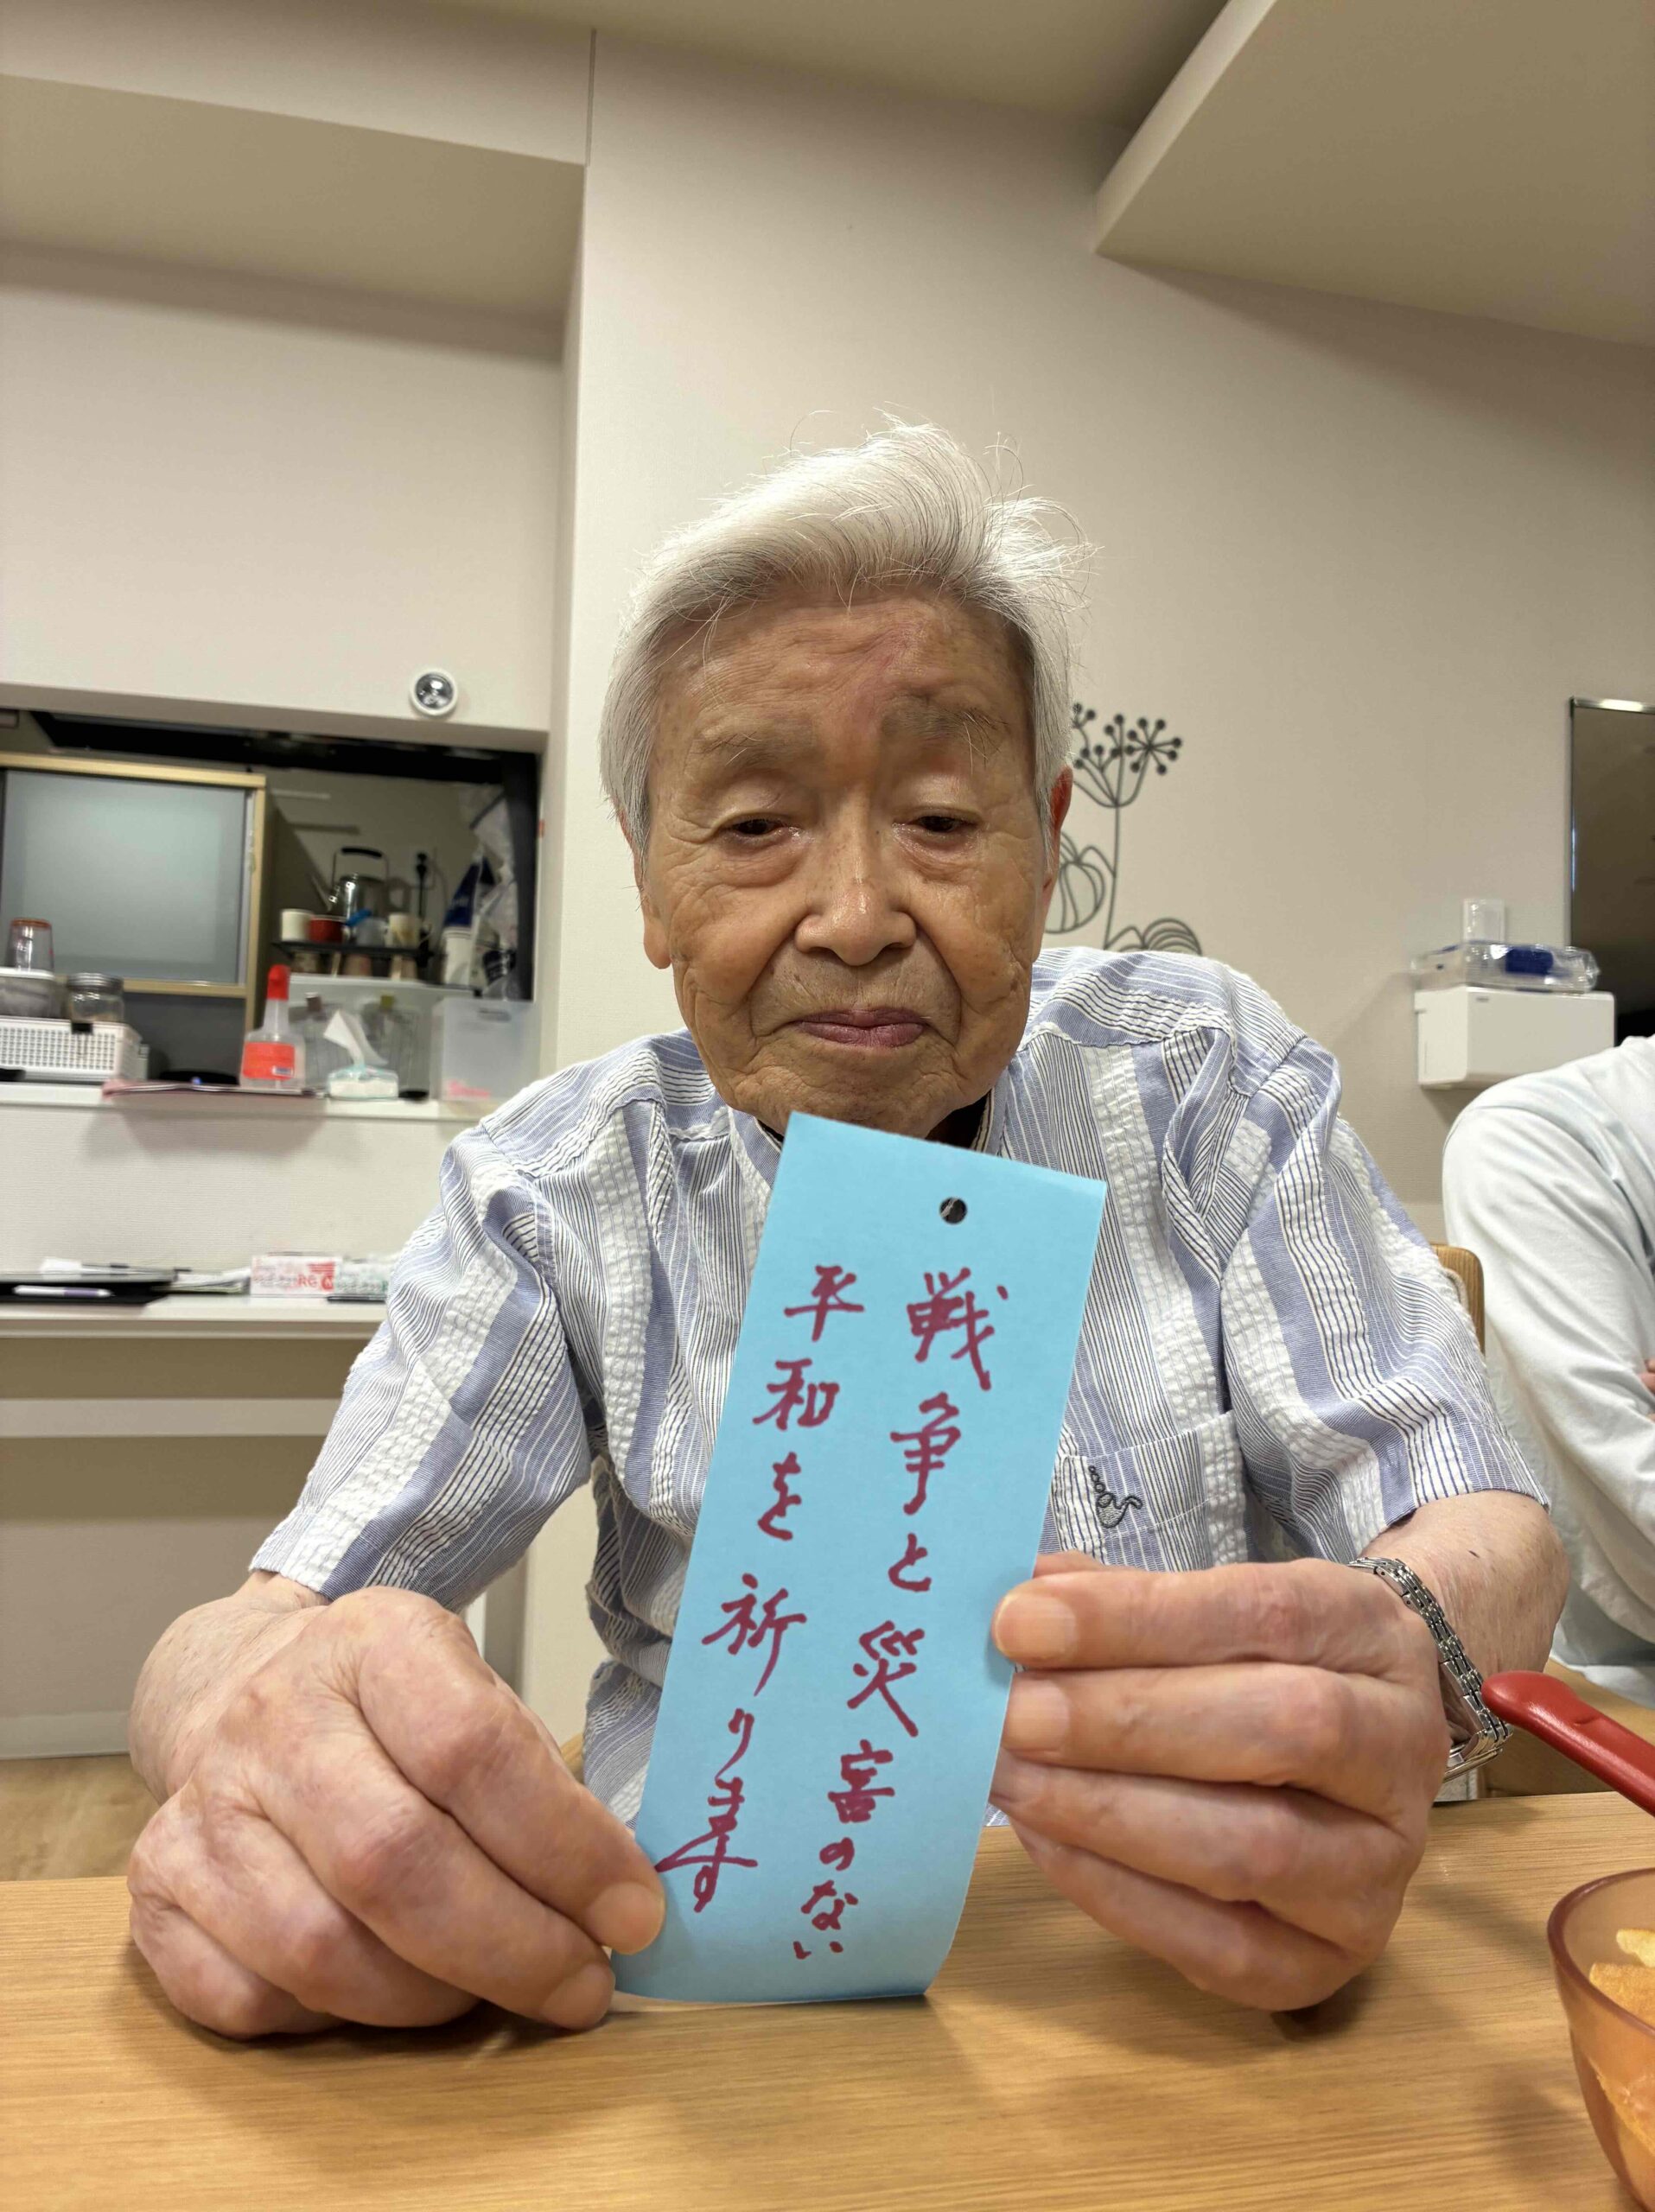 戦争と災害のない
平和を祈ります